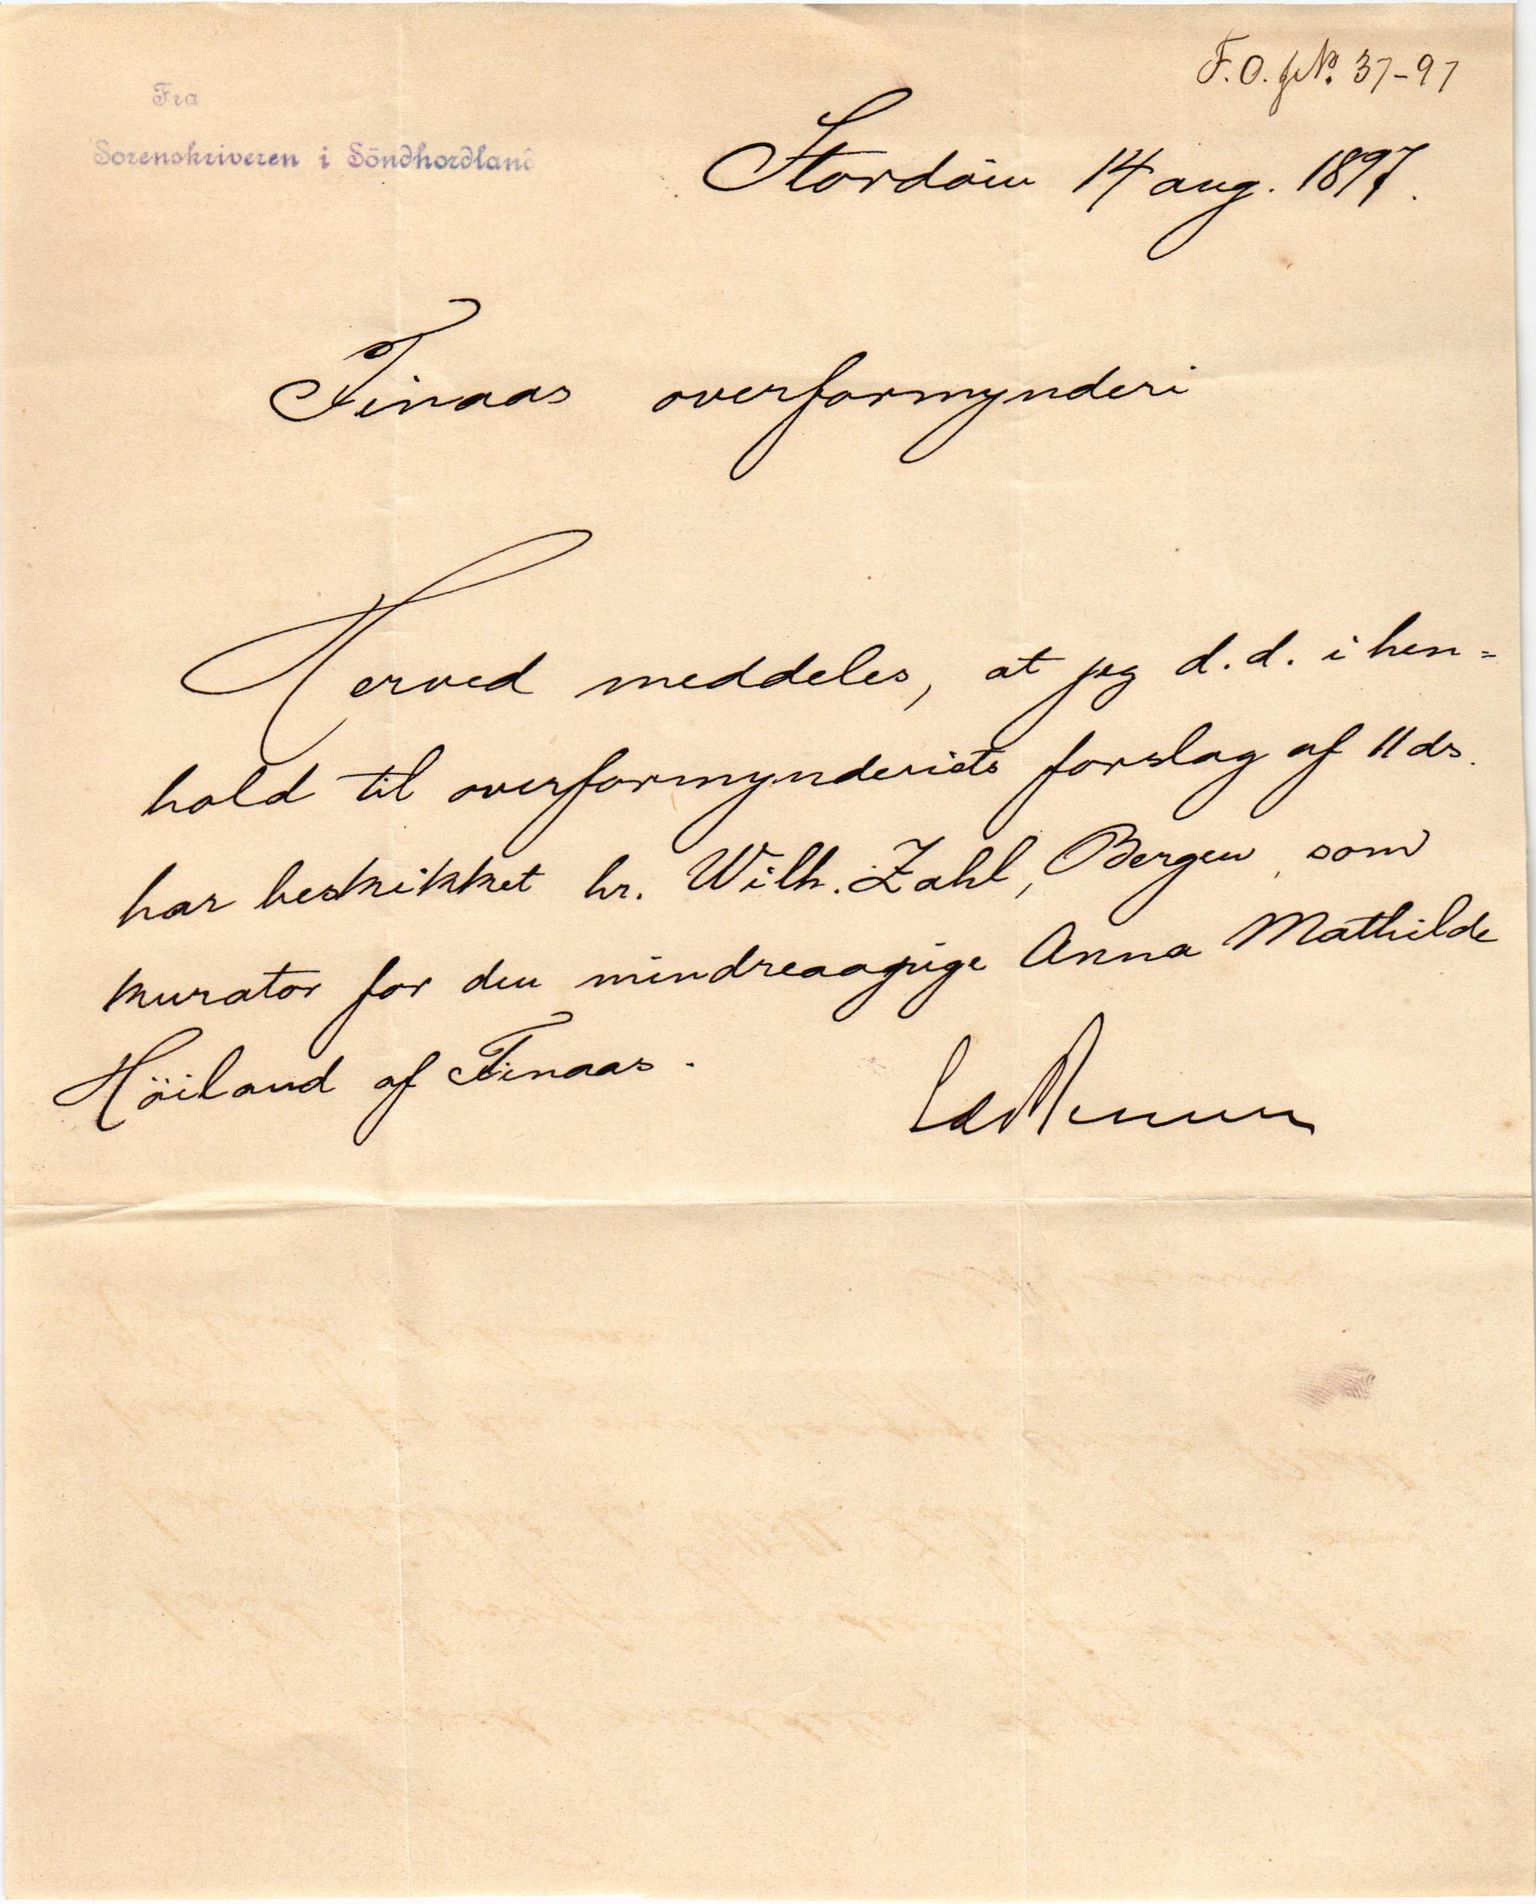 F. O. jr No. 37-97
Fra
Sorenskriveren i Söndhordland
Stordöen 14 aug. 1897.
Finaas overformynderi
Herved meddeles, at jeg d.d. i hen=
hold til overformynderiets forslag af 11 ds.
har beskikket hr. Wilh. Zahl, Bergen, som
kurator for den mindreaarige Anna Mathilde
Höiland af Finaas.